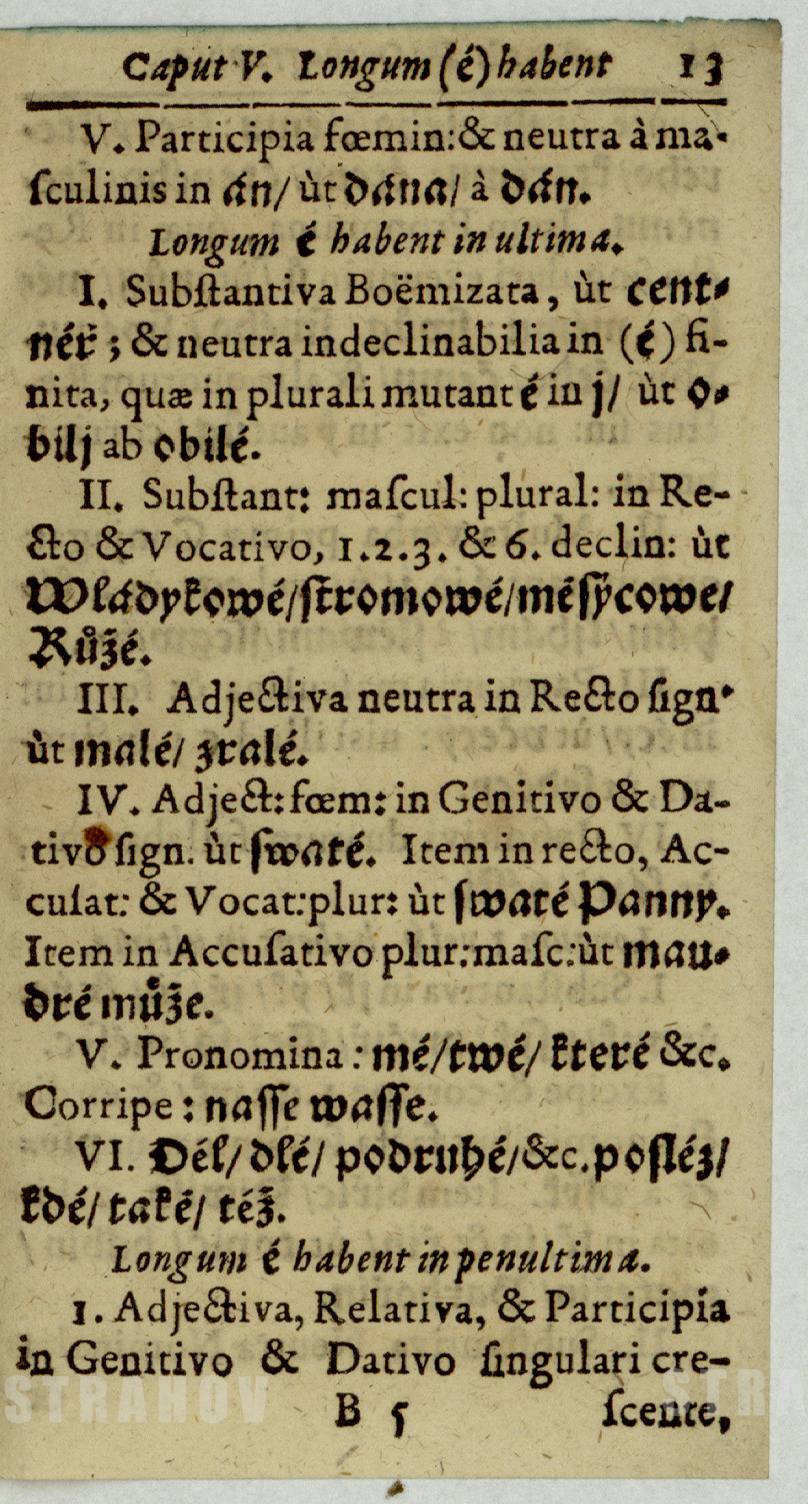 Caput V. Longum (é) habent 13
V. Participia fœmin: & neutra à ma-
ſculinis in án/ ùt dána/ à dán.
Longum é habent in ultima.
I. Subſtantiva Boëmizata, ùt cent-
néř; & neutra indeclinabilia in (é) fi-
nita, quæ in plurali mutant é in j/ ùt o-
bilj ab obilé.
II. Subſtant: maſcul: plural: in Re-
cto & Vocativo, 1.2.3. & 6. declin: ùt
Wládykowé/ ſtromowé/ měſýcowe/
Růžé.
III. Adjectiva neutra in Recto ſign.
ùt malé/ zralé.
IV. Adject: fœm: in Genitivo & Da-
tivo ſign. ùt ſwaté. Item in recto, Ac-
cuſat: & Vocat: plur: ùt ſwaté Panny.
Item in Accuſativo plur: maſc: ùt mau-
dré může.
V. Pronomina: mé/ twé/ které &c.
Corripe: naſſe waſſe.
VI. Dél/ dlé/ podruhé/ &c. poſléz/
kdé/ také/ též.
Longum é habent in penultima.
1. Adjectiva, Relativa, & Participia
in Genitivo & Dativo ſingulari cre-
B 5 ſcente,
STRAHOV STR